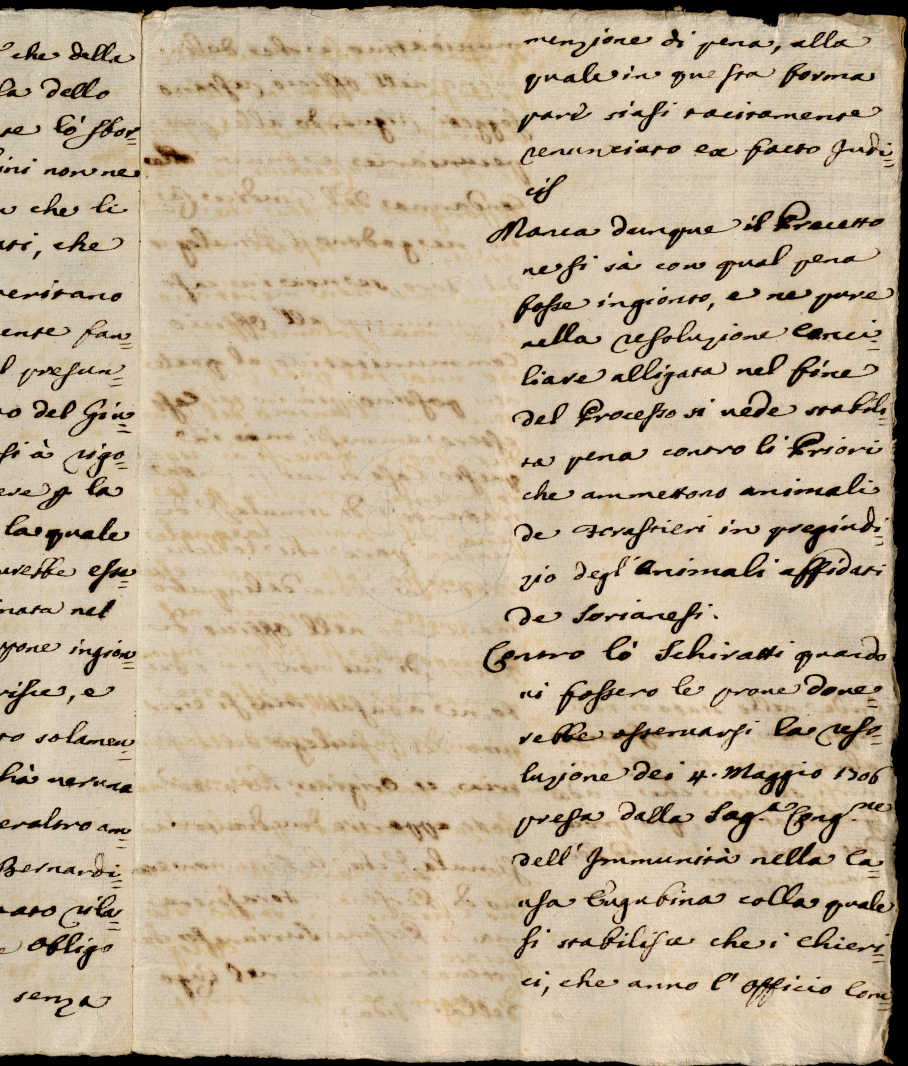 che della
la dello
te lò sbor=
ini non ne
che li
ati, che
veritano
ente fan=
l presun=
o del Giu=
si à rigo=
eve p la
la quale
urebbe esse
inata nel
ppone ingion=
risce, e
ro solamen=
hià veruna
eraltro am=
Bernardi=
rato rila=
e obligo
senza
menzione di pena, alla
quale in questa forma
pare siasi tacitamente
renunciato ex facto Judi=
cis
Manca dunque il Precetto
ne si sà con qual pena
fosse ingionto, e ne pure
nella resoluzione Canci=
liare alligata nel fine
del Processo si uede stabili=
ta pena contro li Priori
che ammettono animali
de Forastieri in pregiudi=
zio degl' Animali affidati
de Sorianesi.
Contro lò Schiratti quando
ui fossero le proue doue=
rebbe osseruarsi la reso=
luzione dei 4. Maggio 1706
presa dalla Sag.a Cong.ne
dell' Immunità nella Ca=
usa Eugubina colla quale
si stabilisce che i Chieri=
ci, che anno l' officio Com=